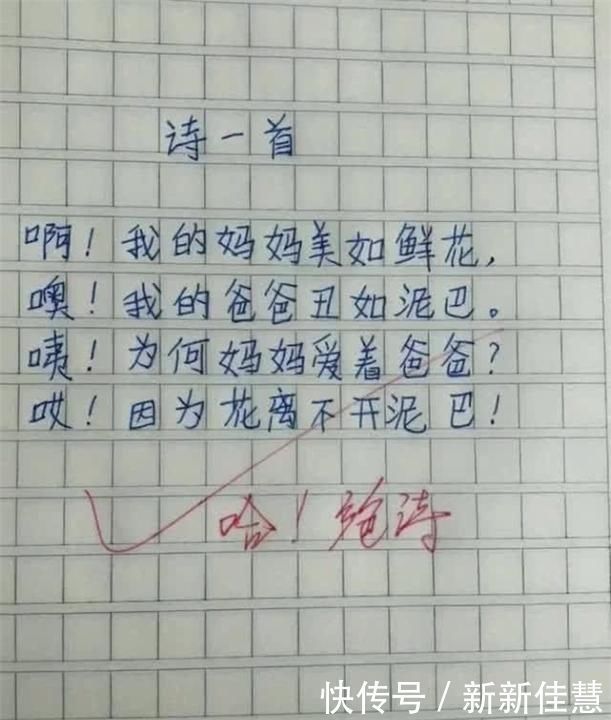 诗一首
啊！我的妈妈美如鲜花，
噢！我的爸爸丑如泥巴。
咦！为何妈妈爱着爸爸？
哎！因为花离不开泥巴！
哈！绝诗
快传号/新新佳慧